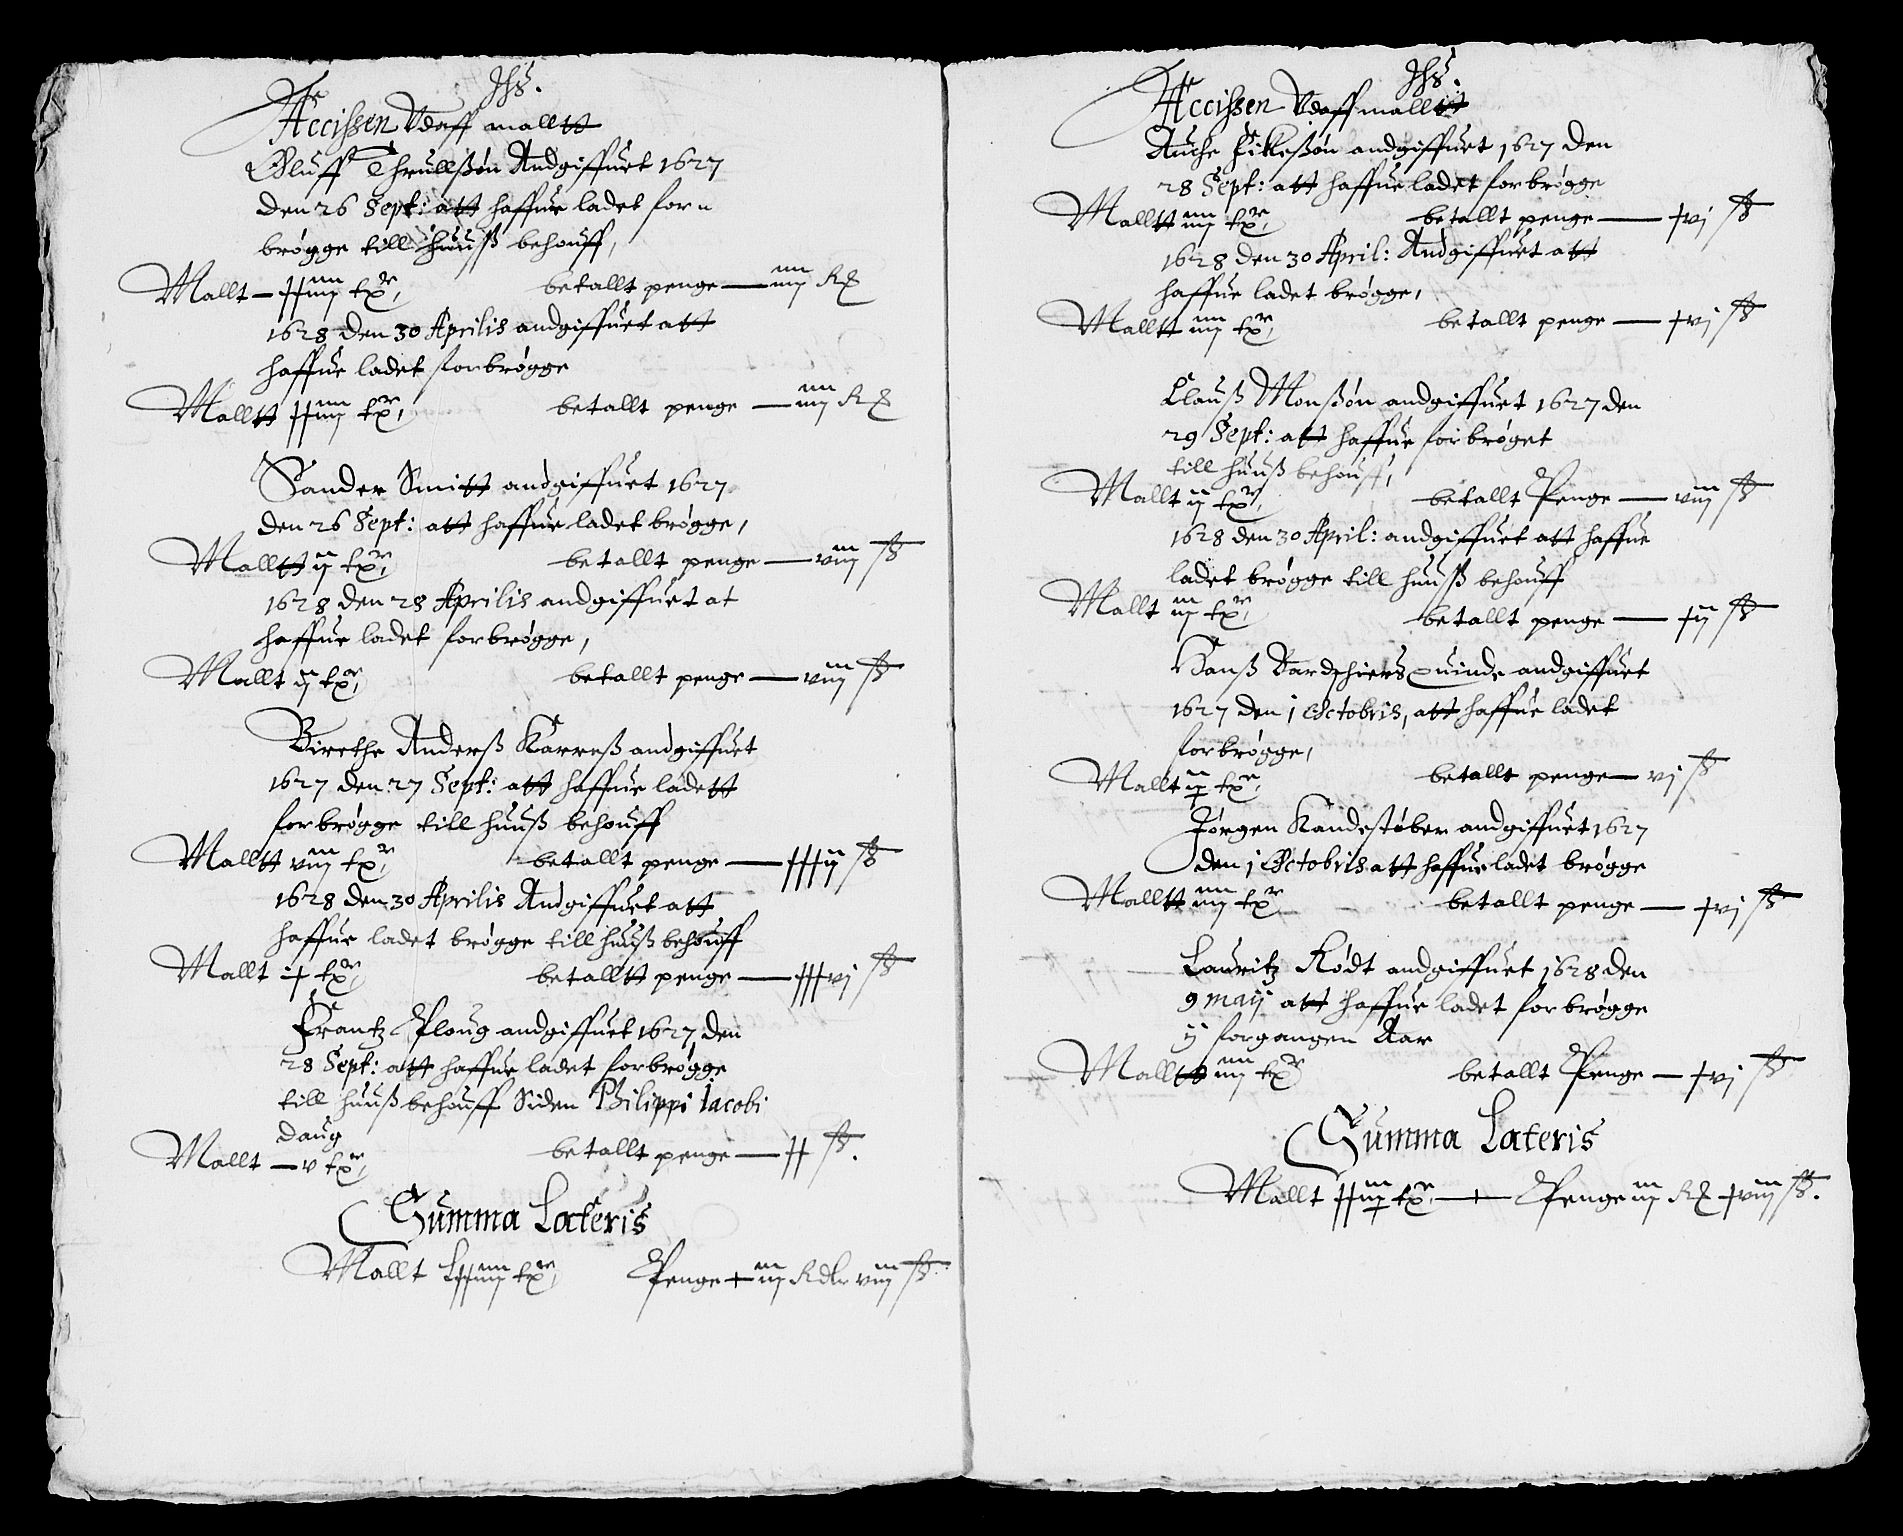 Jhs.
Accissen Vdaff malltt
Oluff Thrullßøn Andgiffuet 1627
den 26 Sept: att haffue ladet forn
brøgge till huuß behouff,
Mallt – xxiiij txr, betallt penge — iiij Rd
1628 den 30 Aprilis andgiffuet att
haffue ladet forbrøgge
Malltt xxiiij txr, betallt penge — iiij Rd
Sander Smitt andgiffuet 1627
den 26 Sept: att haffue ladet brøgge,
Malltt ij txr, betallt penge — viij ß
1628 den 28 Aprilis andgiffuet at
haffue ladet forbrøgge,
Mallt ij txr, betallt penge — viij ß
Birethe Anderß Karreß andgiffuet
1627 den 27 Sept: att haffue ladett
forbrøgge till huuß behouff
Malltt viij txr, betallt penge — xxxij ß
1628 den 30 Aprilis Andgiffuet att
haffue ladet brøgge till huuß behouff
Mallt ix txr, betalltt penge — xxxvj ß
Frantz Ploug andgiffuet 1627, den
28 Sept: att haffue ladet forbrøgge
till huuß behouff Siden Philippi Jacobi
daug
Mallt — v txr, betallt penge — xx ß.
Summa Lateris
Mallt Lxxiiij txr, Penge xiij Rdlr viij ß.
Jhs.
Accissen Vdaff malltt
Auche Fikkeßøn andgiffuet 1627 den
28 Sept: att haffue ladet forbrøgge
Malltt iiij txr, betallt penge — xvj ß
1628 den 30 April: Andgiffuet att
haffue ladet brøgge,
Malltt iiij txr, betallt penge — xvj ß
Clauß Monßøn andgiffuet 1627 den
29 Sept: att haffue forbrøget
till huuß behouff,
Mallt ij txr, betallt Penge — viij ß
1628 den 30 April: andgiffuet att haffue
ladet brøgge till huuß behouff
Mallt iij txr, betallt penge — xij ß
Hanß Bardschiers quinde andgiffuet
1627 den j Octobris, att haffue ladet
forbrøgge,
Mallt ij txr, betallt penge — vj ß
Jørgen Kandestøber andgiffuet 1627
den j Octobris att haffue ladet brøgge
Malltt iiij txr betallt penge — xvj ß
Lauritz Rødt andgiffuet 1628 den
9 maij att haffue ladet forbrøgge
ij forgangen Aar
Malltt iiij txr betallt Penge — xvj ß
Summa Lateris
Mallt xxiij txr, — Penge iij Rd xviij ß.